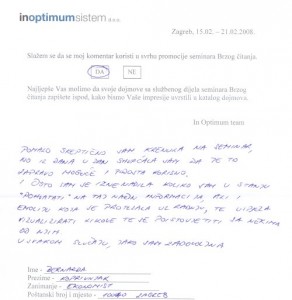 inoptimumsistem d.o.o.
Zagreb, 15.02. – 21.02.2008.
Slažem se da se moj komentar koristi u svrhu promocije seminara Brzog čitanja.
DA NE
Najljepše Vas molimo da svoje dojmove sa službenog dijela seminara Brzog
čitanja zapišete ispod, kako bismo Vaše impresije uvrstili u katalog dojmova.
In Optimum team
POMALO SKEPTIČNO SAM KRENULA NA SEMINAR,
NO IZ DANA U DAN SHVAĆALA SAM DA JE TO
ZAPRAVO MOGUĆE I DOSTA KORISNO.
OSTALA SAM IZNENAĐENA KOLIKO SAM U STANJU
"POHVATATI" NA TAJ NAČIN INFORMACIJA, ALI I
EMOCIJU KOJA SE PROTEZALA UZ RADNJU, TE UVIJEK
VIZUALIZIRATI LIKOVE TE SE POISTOVJETITI SA NEKIMA
OD NJIH.
U SVAKOM SLUČAJU, JAKO SAM ZADOVOLJNA
Ime - BERNARDA
Prezime - KOPRIVNJAK
Zanimanje - EKONOMIST
Poštanski broj i mjesto - 10000 ZAGREB